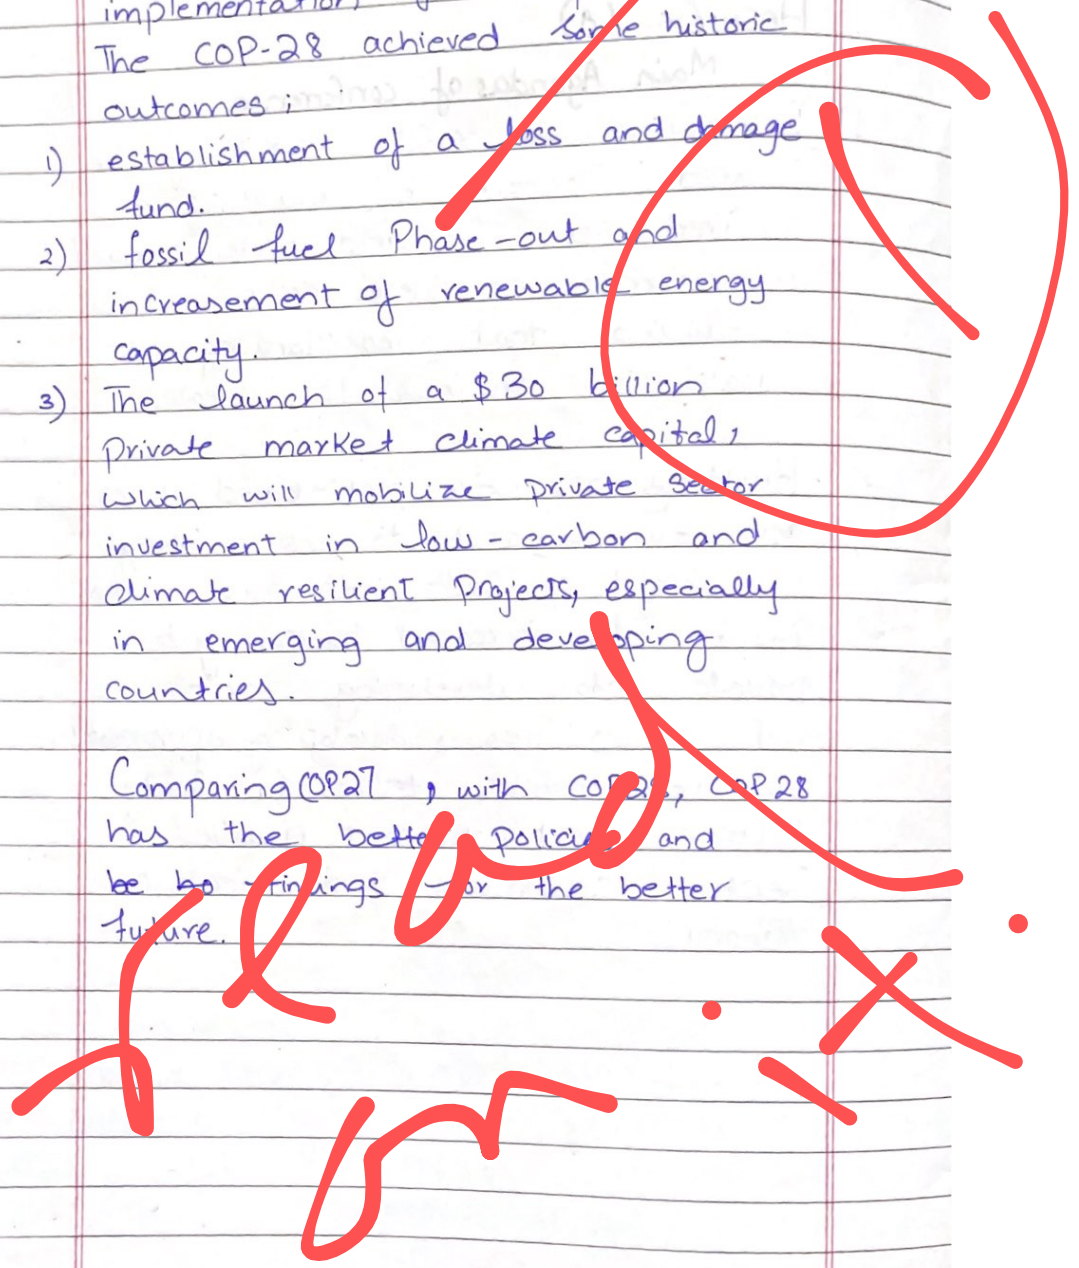 implementation
The COP-28 achieved some historic
outcomes:
1) establishment of a loss and damage
fund.
2) fossil fuel Phase-out and
increasement of renewable energy
capacity.
3) The launch of a $30 billion
Private market climate capital,
which will mobilize private sector
investment in low-carbon and
climate resilient Projects, especially
in emerging and developing
countries.
Comparing COP27, with COP28, COP 28
has the better policies and
findings for the better
future.